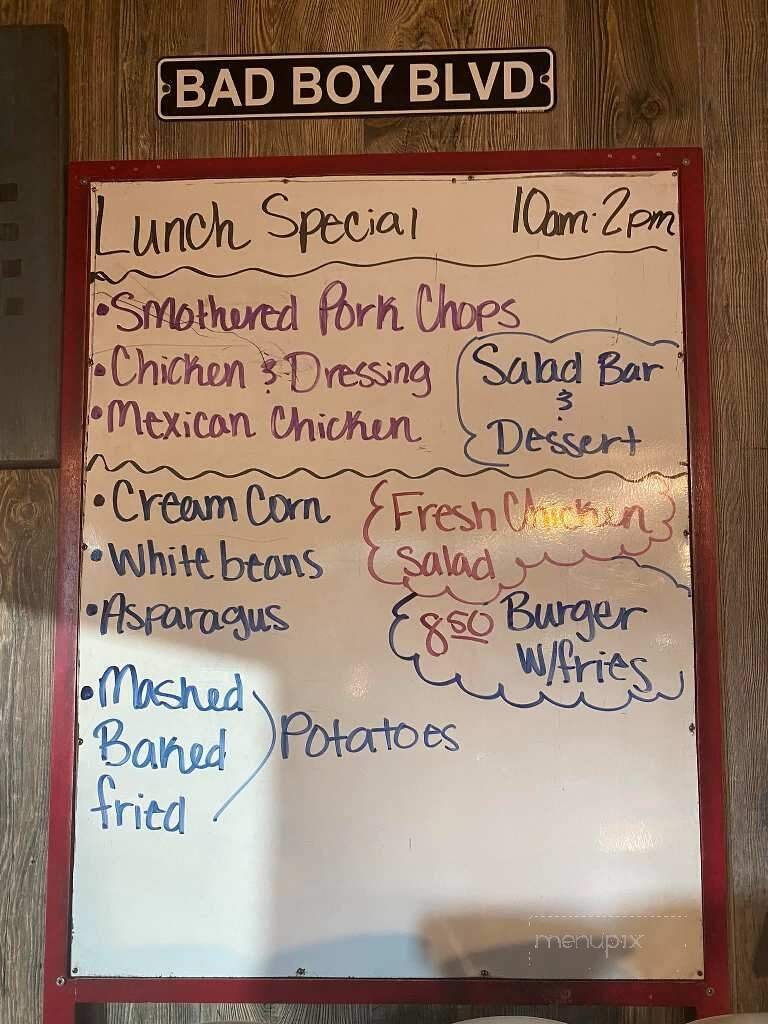 BAD BOY BLVD
Lunch Special 10am-2pm
•Smothered Pork Chops
•Chicken & Dressing
•Mexican Chicken
Salad Bar
&
Dessert
•Cream Corn
•White beans
•Asparagus
Fresh Chicken
Salad
850 Burger
W/fries
•Mashed
Baked
fried
Potatoes
menupix